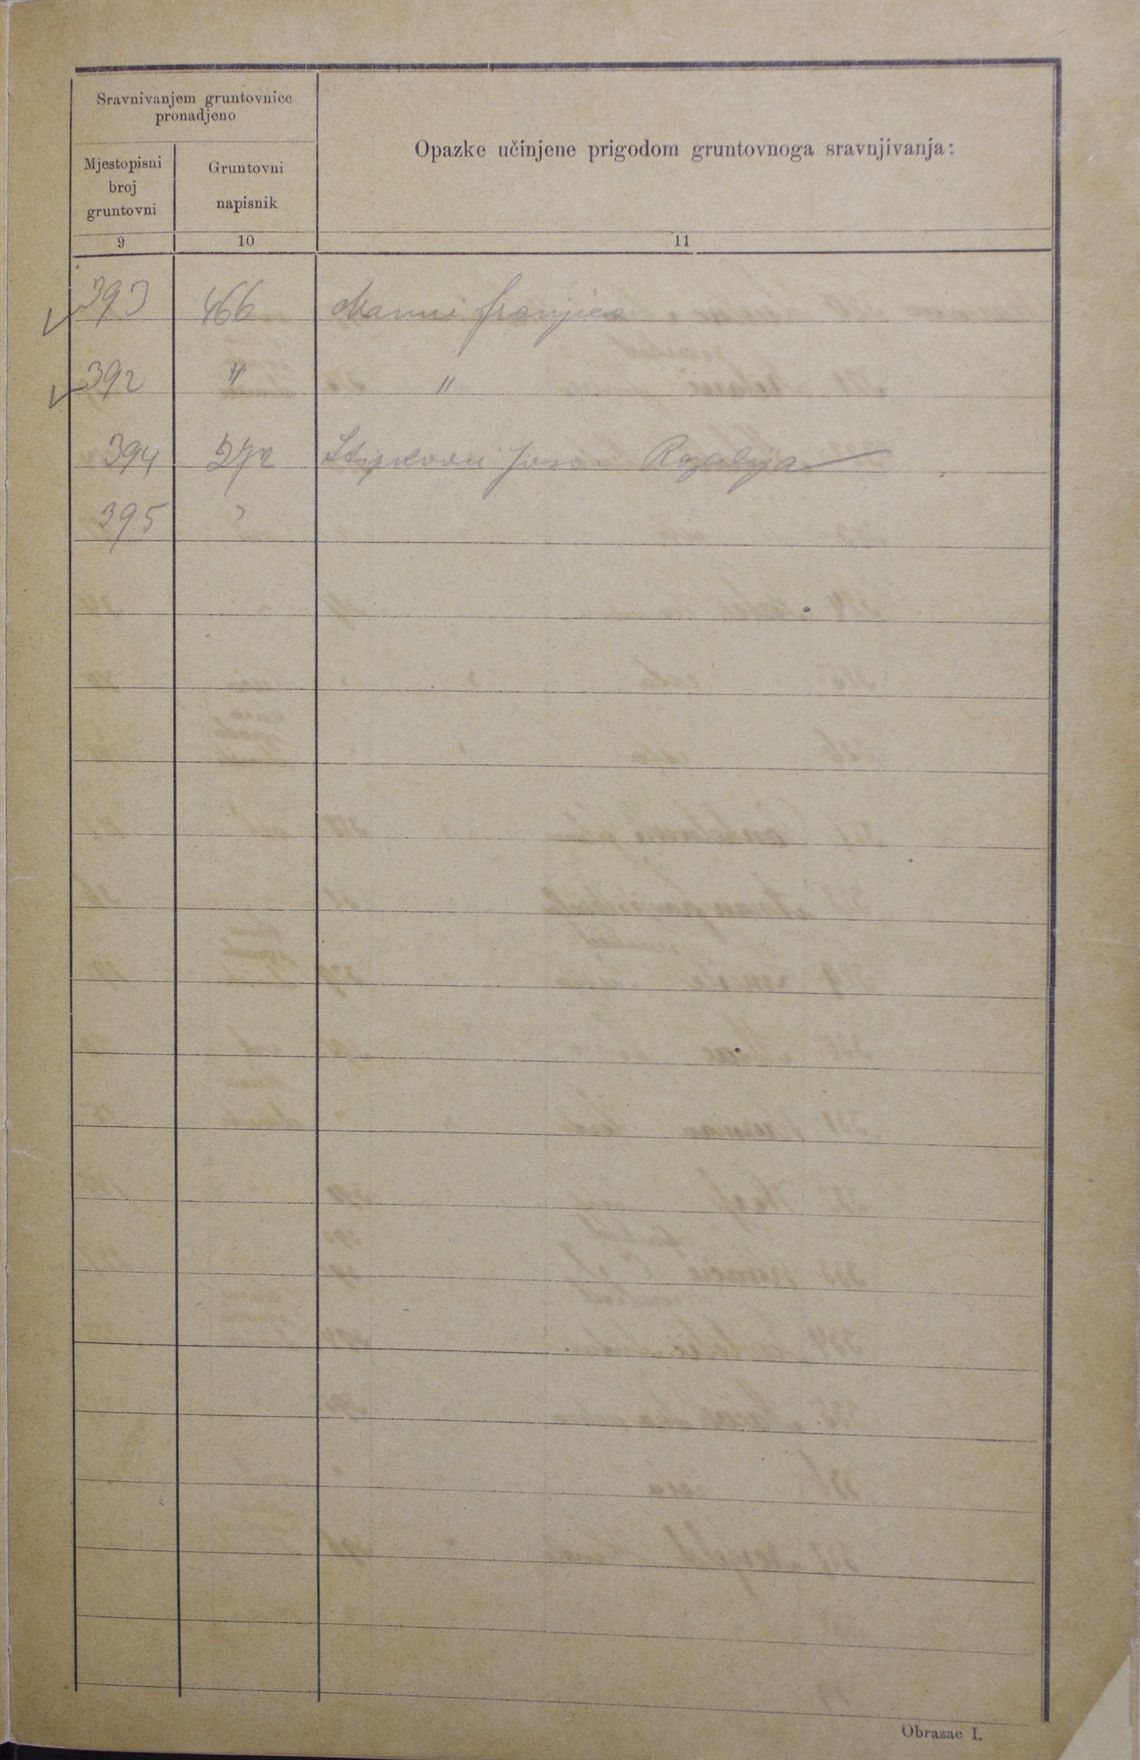 Sravnivanjem gruntovnice
pronadjeno
Opazke učinjene prigodom gruntovnoga sravnjivanja:
Mjestopisni
broj
gruntovni
Gruntovni
napisnik
9 10 11
393 466 Franjica
392 " "
394 272 Rozalija
395 "
Obrazac I.